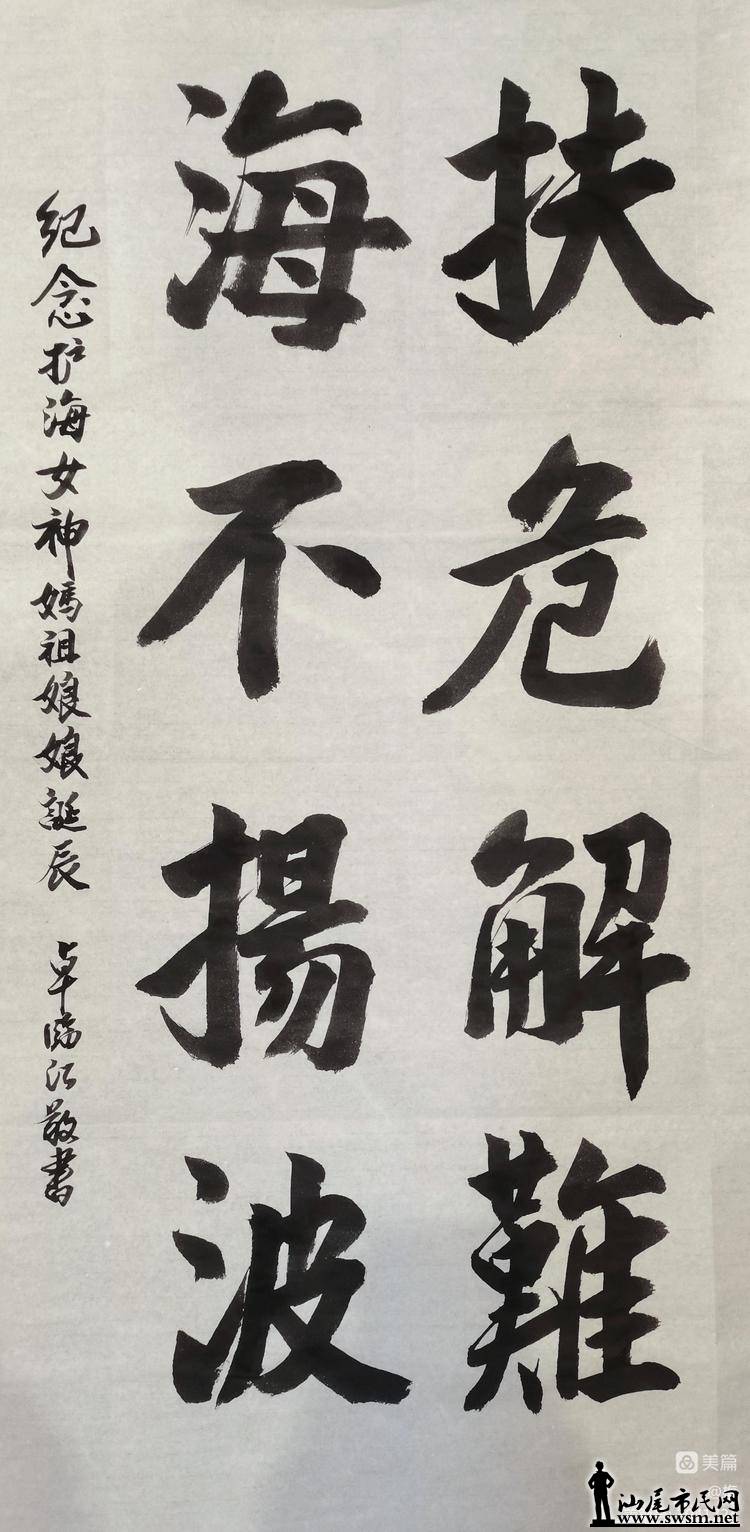 扶危解難
海不揚波
纪念护海女神妈祖娘娘誕辰
卓临江敬書
美篇
汕尾市民网
www.swsm.net